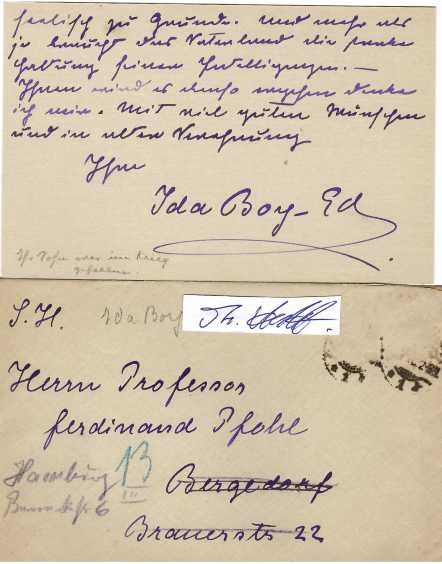 seelisch zu Grunde. Und mehr als
je braucht das Vaterland die starke
Haltung seiner Intelligenzen. —
Ihnen wird es ebenso ergehen denke
ich mir. Mit viel guten Wünschen
und in alter Verehrung
Ihre
Ida Boy-Ed.
Ihr Sohn war im Krieg
gefallen.
S. H.
Ida Boy
Herrn Professor
Ferdinand Pfohl
Hamburg 13
III
Bergedorf
6
Brauerstr 22